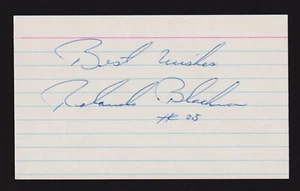 Best wishes
Rolando Blackman
# 25